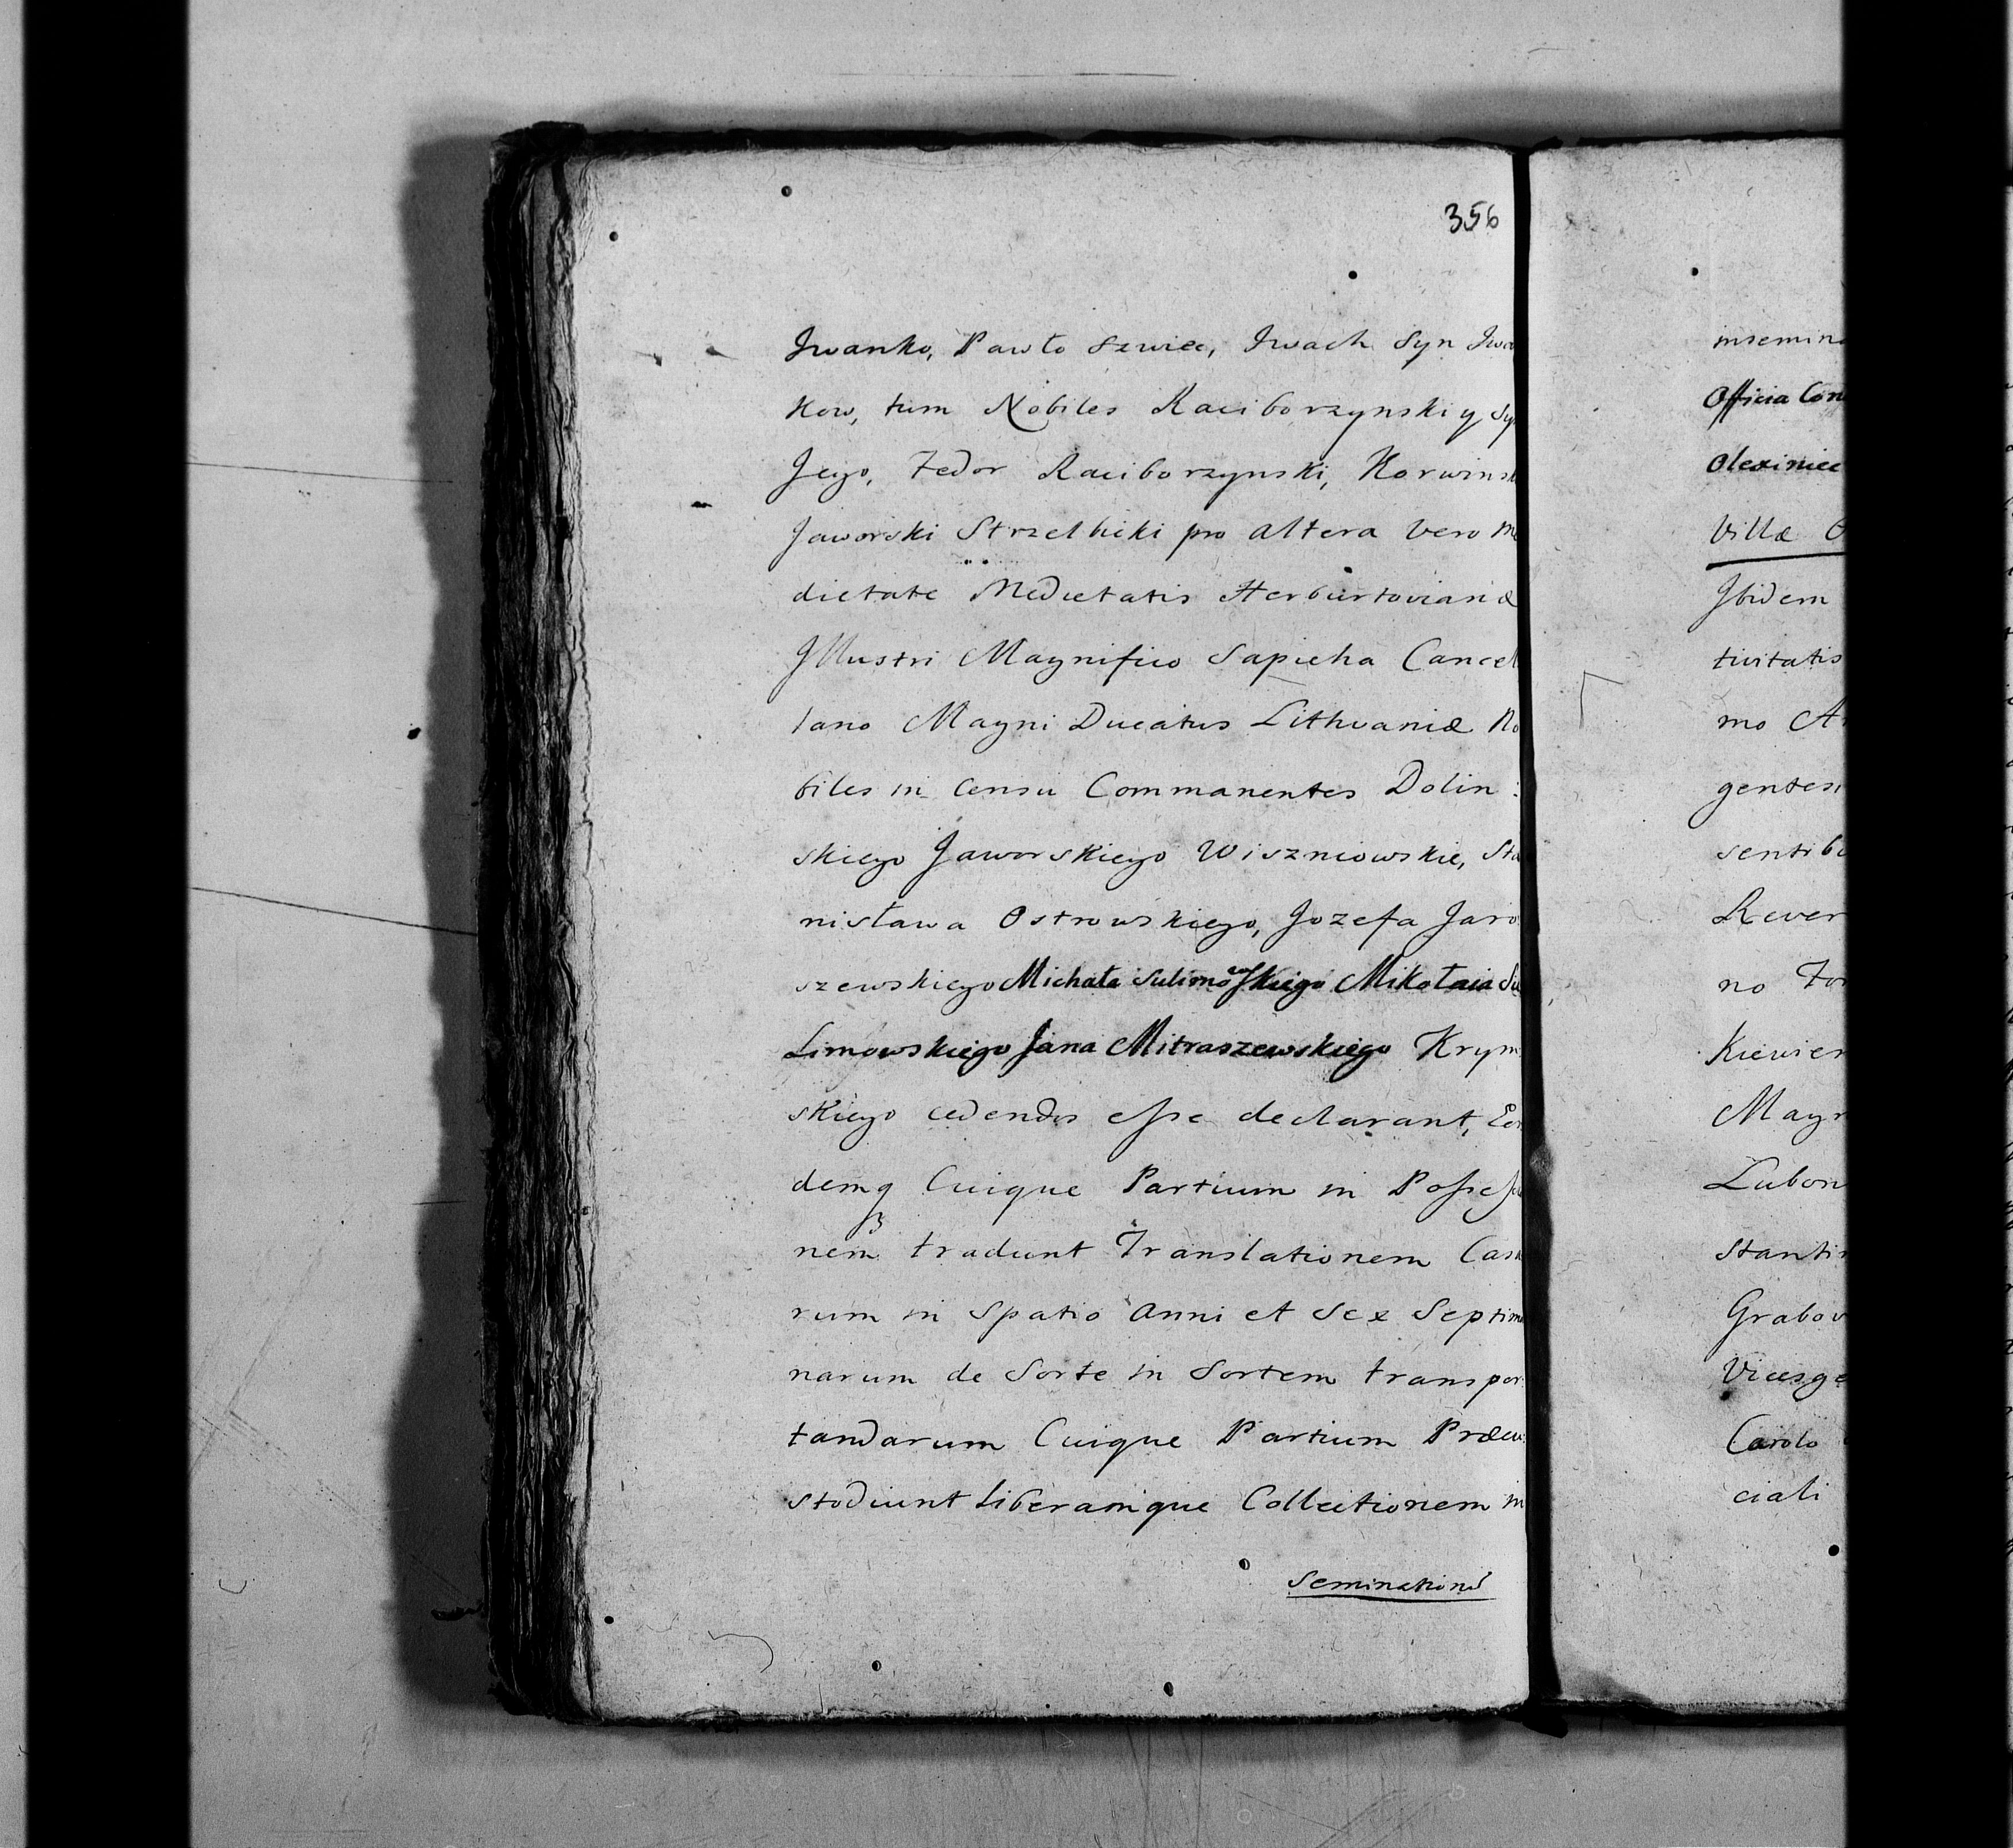 356
Iwanko, Pawło Szwiec, Iwach Syn Iwa
kow, tum Nobiles Raciborzynski y Sy
Jego, Fedor Raciborzynski, Korwinsk
Jaworski Strzelbicki pro altera vero Me
dietate Medietatis Herburtovianæ
Illustri Magnifico Sapieha Cancel
lano Magni Ducatus Lithvaniæ No
biles in Censu Commanentes Dolin:
skiego Jaworskiego Wiszniowskie, Sta
nisława Ostrowskiego, Jozefa Jaro
szewskiego Michała Sulimowskiego Mikołaia Su
Limowskiego Jana Mitraszewskiego Krym
skiego cedendos esse declarant, Eos
demq Cuique Partium in Possessio
nem tradunt Translationem Casa
rum in Spatio Anni et Sex Septima
narum de Sorte in Sortem transpor
tandarum Cuique Partium Præcu:
stodiunt Liberamque Collectionem in
Seminationis
insemina
Officia Con
Olexiniec
Villæ
Ibidem
tivitatis
mo A
gentesi
sentibu
Rever
no
Kiewien
Magn
Lubon
stanti
Grabov
Vicesge
Carolo
ciali